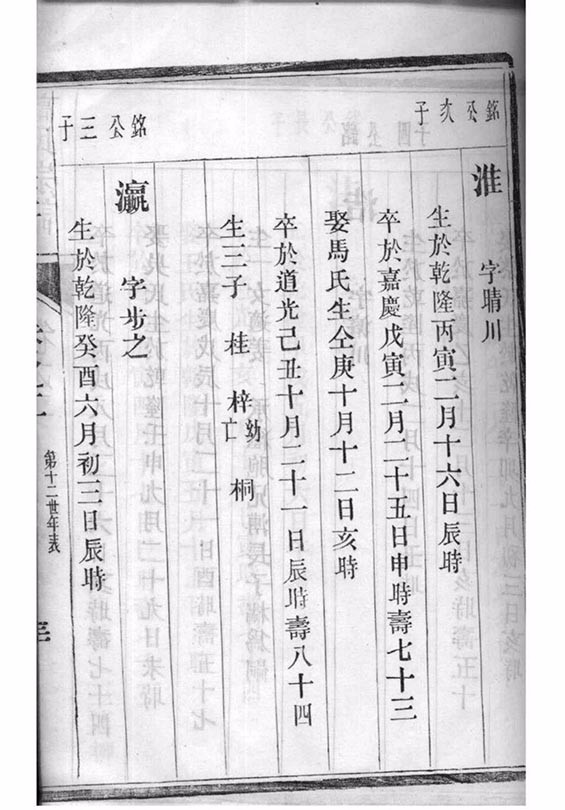 銘公次子
淮　字晴川
生於乾隆丙寅二月十六日辰時
卒於嘉慶戊寅二月二十五日申時壽七十三
娶馬氏生仝庚十月十二日亥時
卒於道光己丑十月二十一日辰時壽八十四
生三子　桂　梓幼亡　桐
銘公三子
瀛　字步之
生於乾隆癸酉六月初三日辰時
第十二世年表